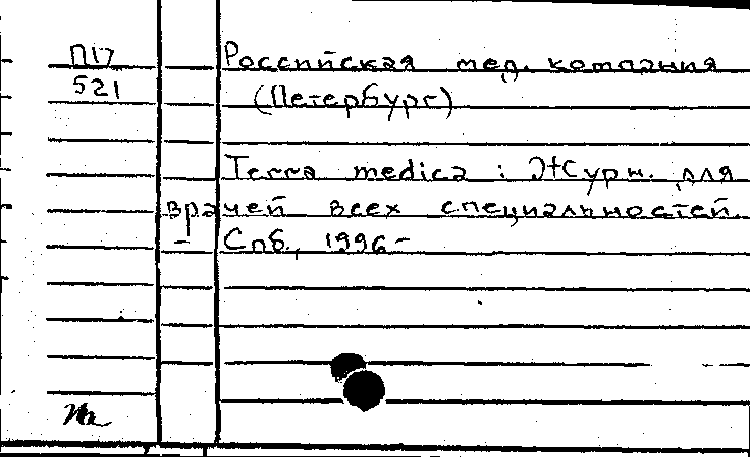 П17
521
Российская мед. компания
(Петербург)
Terra medica : Журн. для
врачей всех специальностей. –
Спб., 1996–